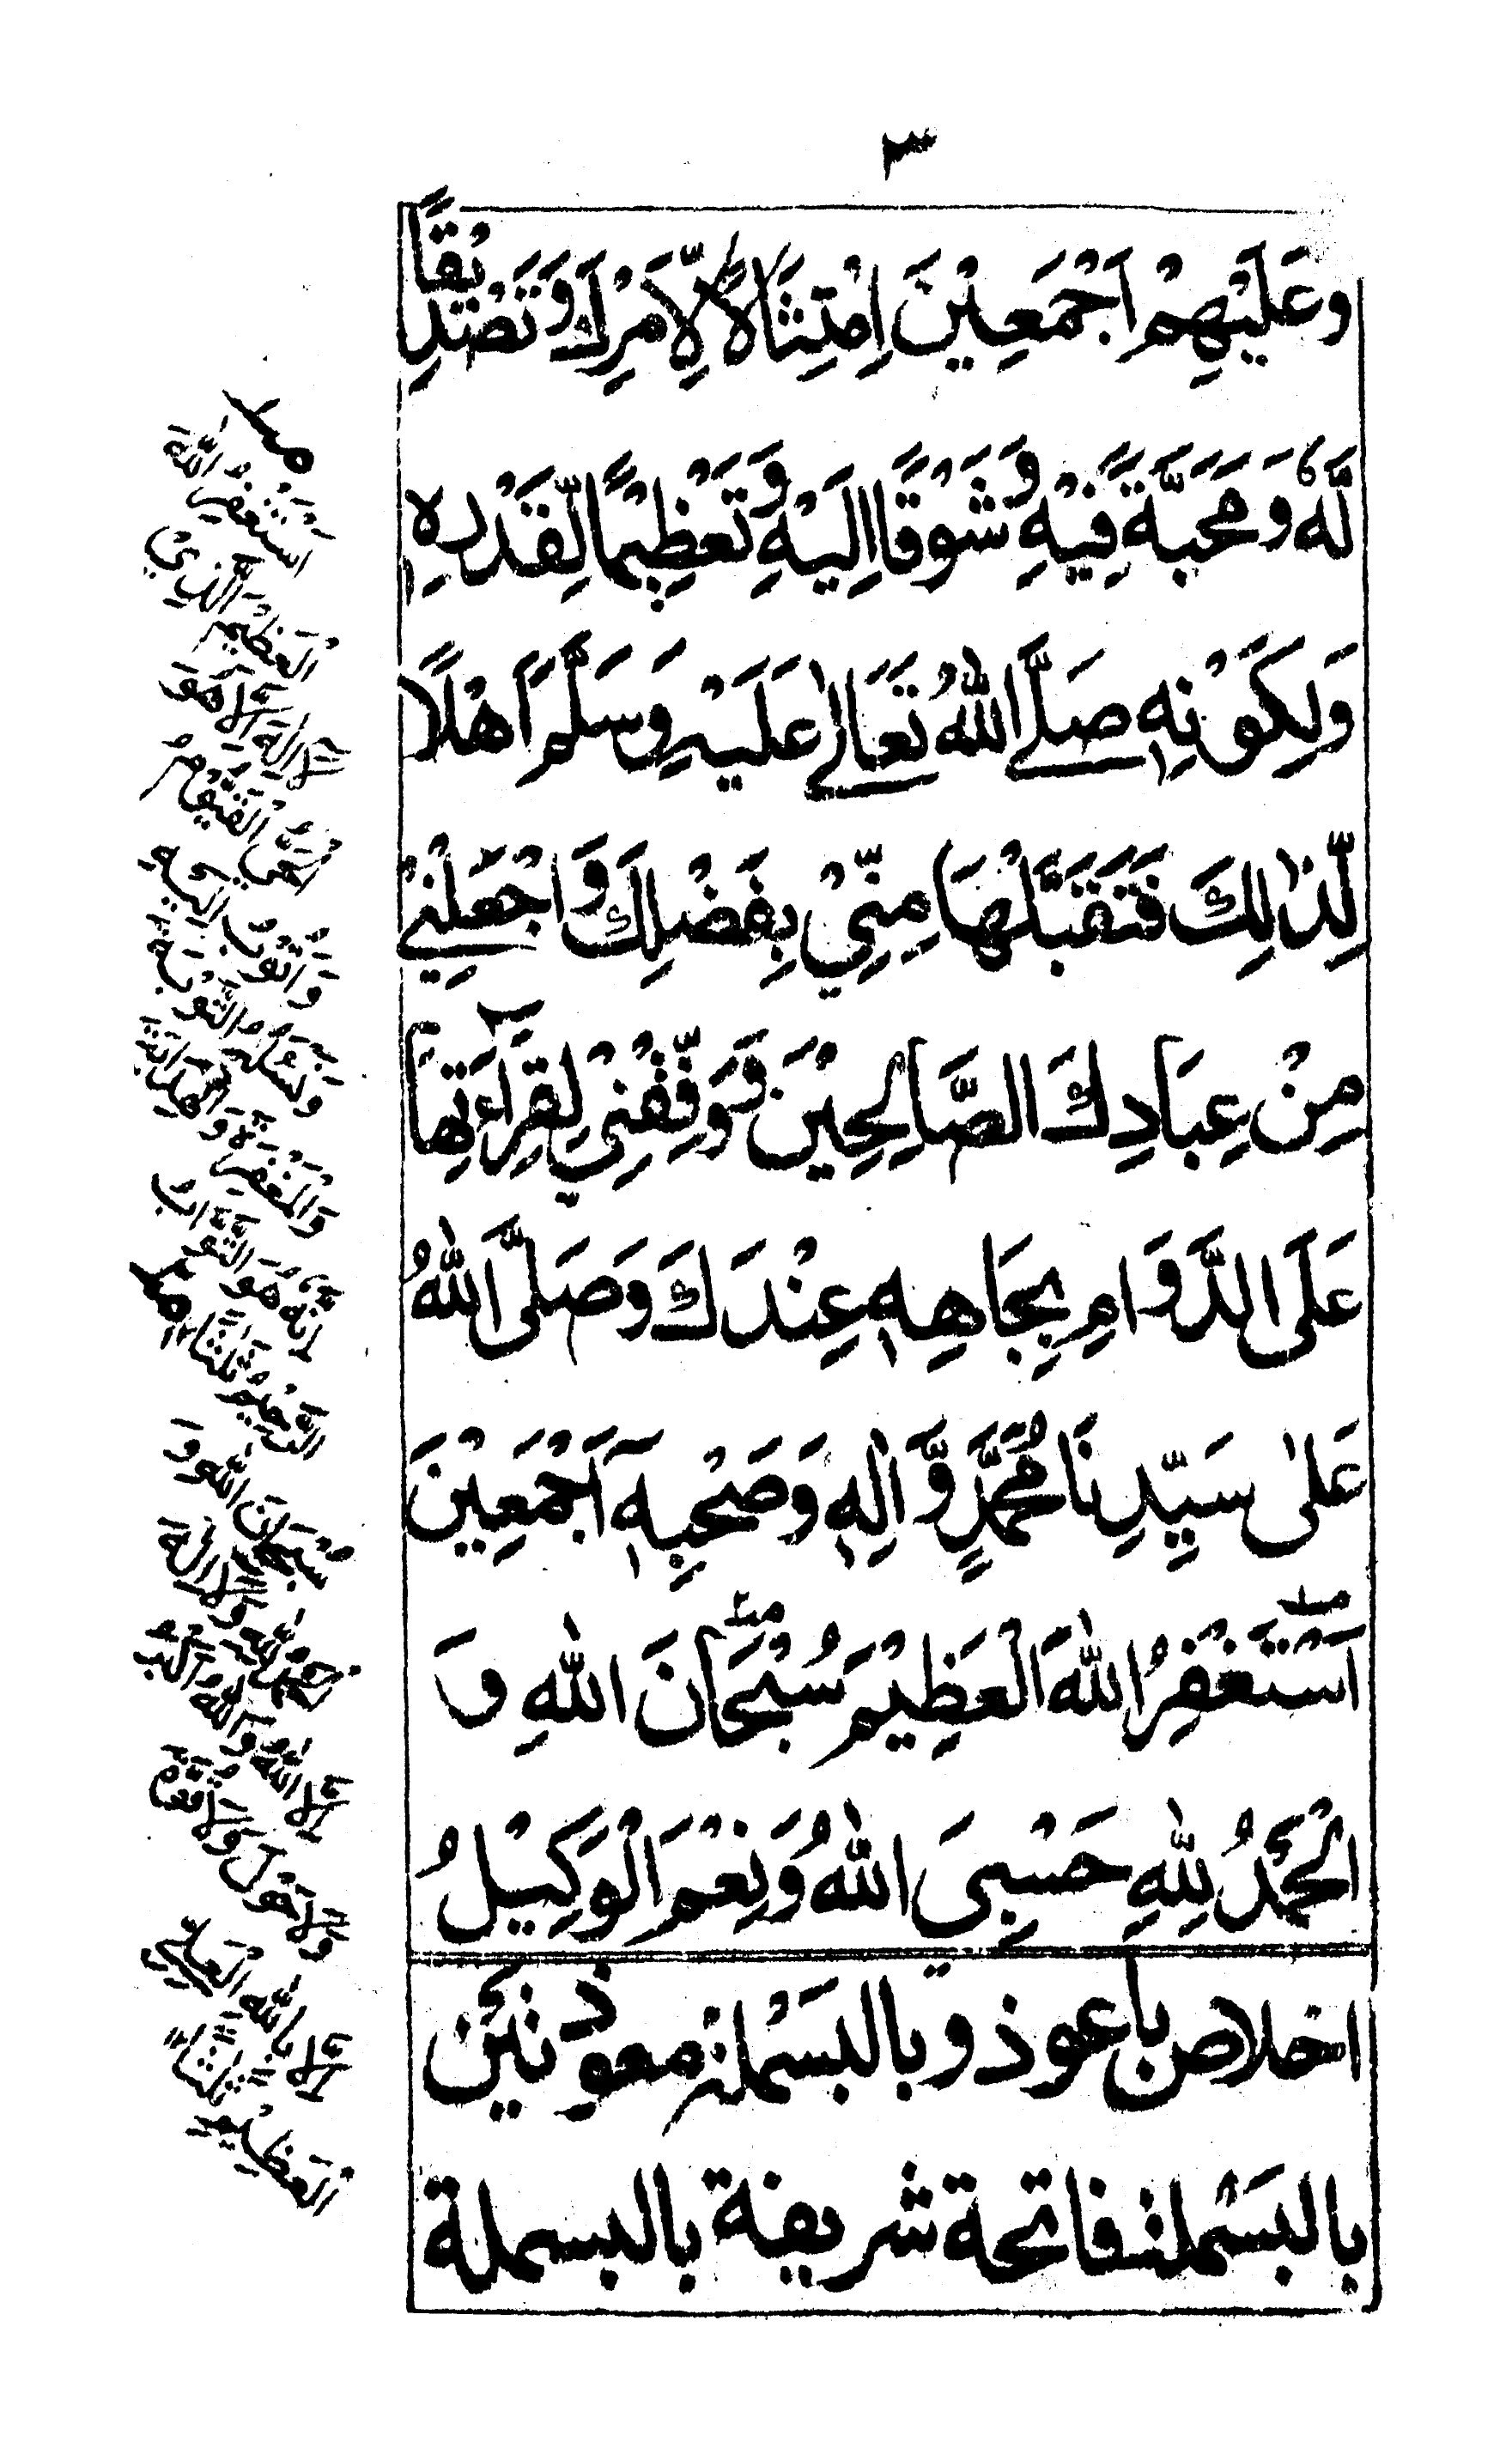 ٣
وَعَلَيْهِمْ اَجْمَعِيْنَ اِمْتِثَالًا لِّاَمْرِكَ وَتَصْدِيْقًا
لَّهٗ وَمَحَبَّةً فِيْهِ وَشَوْقًا اِلَيْهِ وَتَعْظِيْمًا لِّقَدْرِهٖ
وَلِكَوْنِهٖ صَلَّے اللّٰهُ تَعَالٰے عَلَيْهِ وَسَلَّمَ اَهْلًا
لِّذٰلِكَ فَتَقَبَّلْهَا مِنِّيْ بِفَضْلِكَ وَاجْعَلْنِيْ
مِنْ عِبَادِكَ الصَّالِحِيْنَ فَوَفِّقْنِيْ لِقِرَاءَتِهَا
عَلَى الدَّوَامِ بِجَاهِهٖ عِنْدَكَ وَصَلَّى اللّٰهُ
عَلٰى سَيِّدِنَا مُحَمَّدٍ وَّاٰلِهٖ وَصَحْبِهٖٓ اَجْمَعِيْنَ
اَسْتَغْفِرُ اللّٰهَ الْعَظِيْمَ سُبْحَانَ اللّٰهِ وَ
الْحَمْدُ لِلّٰهِ حَسْبِيَ اللّٰهُ وَنِعْمَ الْوَكِيْلُ
اخلاص باعوذ وبالبَسْملة معوذتين
بالبَسْملة فاتحة شريفة بالبسملة
اَسْتَغْفِرُ اللّٰهَ
الْعَظِيْمَ الَّذِيْ
لَآ اِلٰهَ اِلَّا هُوَ
الْحَيُّ الْقَيُّوْمُ
وَاَتُوْبُ اِلَيْهِ
وَنَسْأَلُهُ التَّوْبَةَ
وَالْمَغْفِرَةَ وَالْهِدَايَةَ
اِنَّهٗ هُوَ التَّوَّابُ
الرَّحِيْمُ ثَلٰثًا
سُبْحَانَ اللّٰهِ وَ
الْحَمْدُ لِلّٰهِ وَلَآ اِلٰهَ
اِلَّا اللّٰهُ وَاللّٰهُ اَكْبَرُ
وَلَا حَوْلَ وَلَا قُوَّةَ
اِلَّا بِاللّٰهِ الْعَلِيِّ
الْعَظِيْمِ ثَلٰثًا